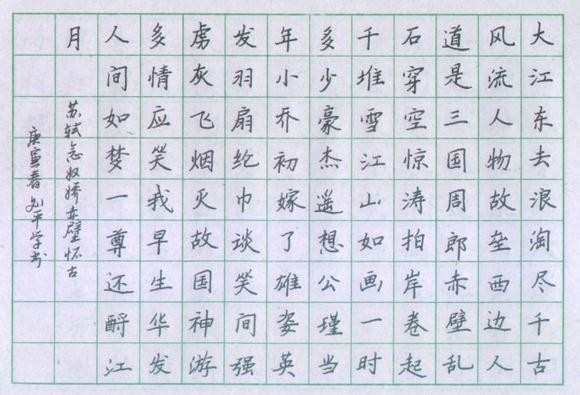 大江东去浪淘尽千古
风流人物故垒西边人
道是三国周郎赤壁乱
石穿空惊涛拍岸卷起
千堆雪江山如画一时
多少豪杰遥想公瑾当
年小乔初嫁了雄姿英
发羽扇纶巾谈笑间强
虏灰飞烟灭故国神游
多情应笑我早生华发
人间如梦一尊还酹江
月
苏轼念奴娇赤壁怀古
庚寅春 平学书